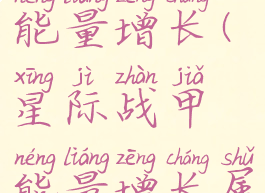 néng liàng zēng cháng
能量增长(
xīng jì zhàn jiǎ
星际战甲
néng liàng zēng cháng shǔ
能量增长属